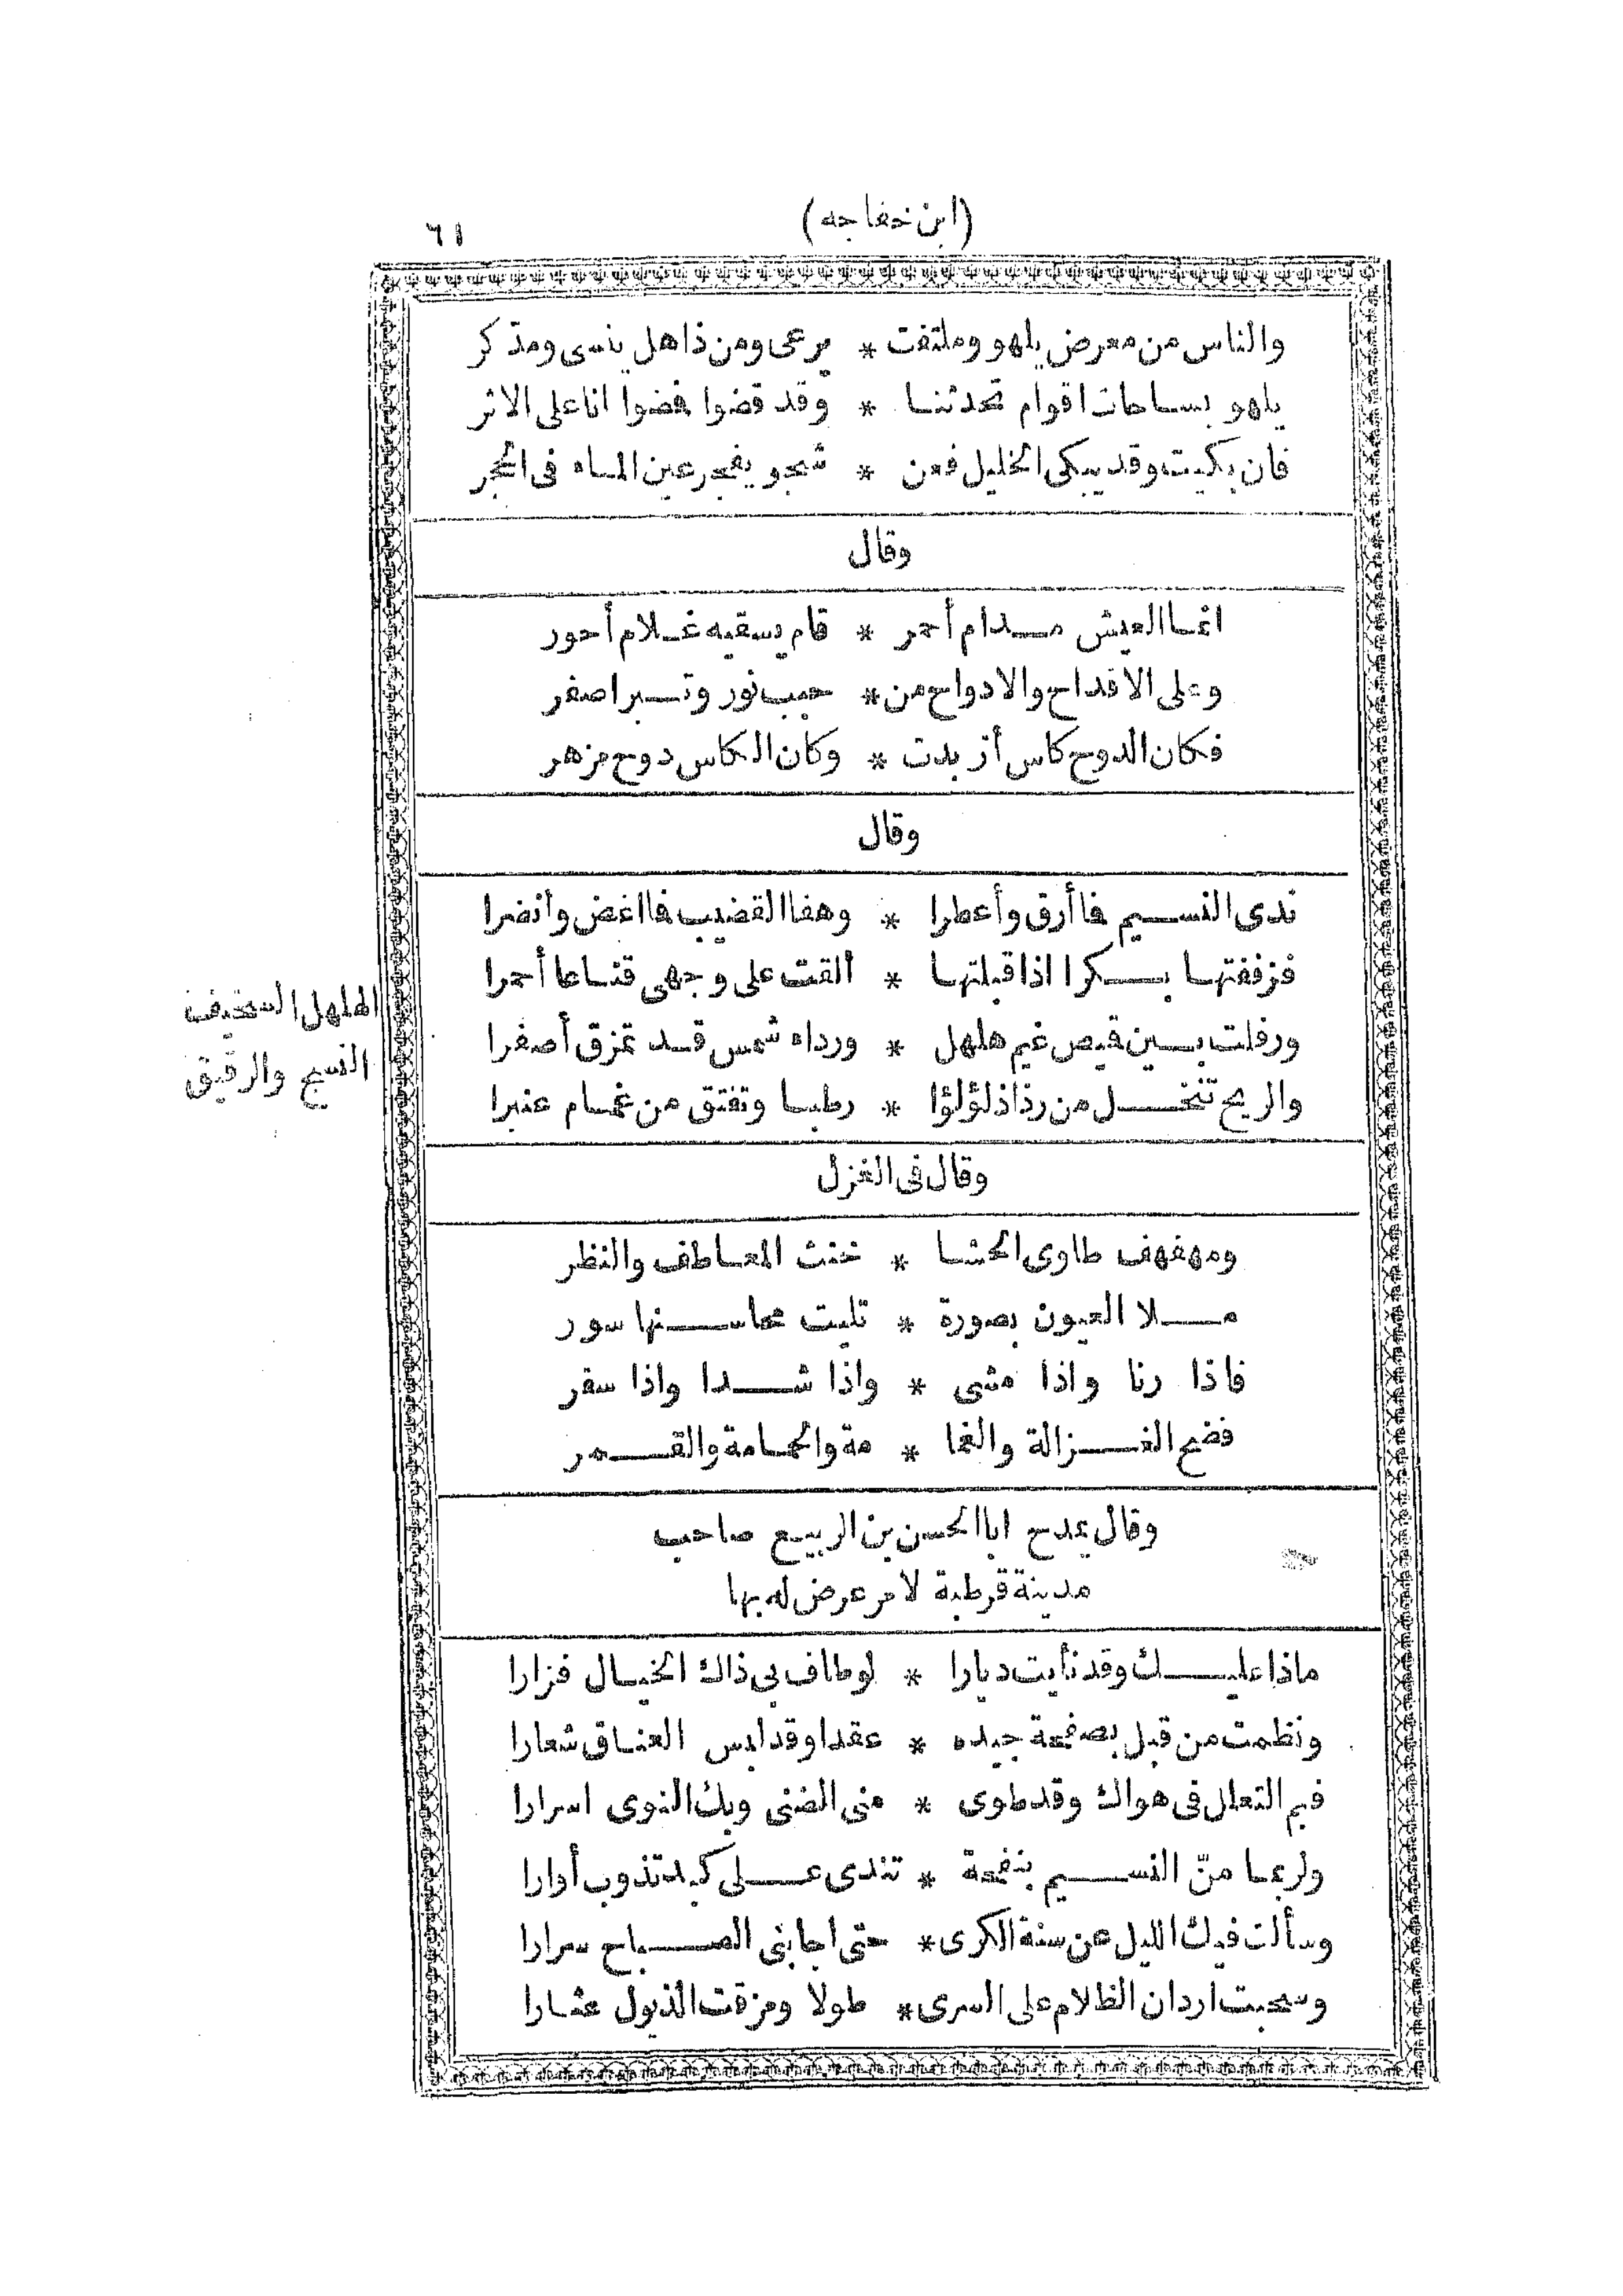 (ابن خفاجه)
٦١
والناس من معرض يلهو وملتفت * يرعى ومن ذاهل ينسى ومدّكر
يلهو بساحات اقوام تحدثنا * وقد قضوا فضوا انا على الاثر
فان بكيت وقد يبكى الخليل فعن * شجو يفجر عين الماء فى الحجر
وقال
انما العيش مدام أحمر * قام يسقيه غلام أحور
وعلى الاقداح والادواح من * حبب نور وتبر اصفر
فكان الدوح كاس أزبدت * وكان الكاس دوح مزهر
وقال
ندى النسيم فما أرق وأعطرا * وهفا القضيب فما اغض وأنضرا
فزففتها بكرا اذا قبلتها * ألقت على وجهى قناعا أحمرا
ورفلت بين قيص غيم هلهل * ورداء شمس قد تمزق أصفرا
والريح تنخل من رذاذ لؤلؤا * رطبا وتفتق من غمام عنبرا
الهلهل السخيف
النسج والرقيق
وقال فى الغزل
ومهفهف طاوى الحشا * خنث المعاطف والنظر
ملا العيون بصورة * تليت محاسنها سور
فاذا رنا واذا مشى * واذا شدا واذا سفر
فضح الغزالة والغما * مة والحمامة والقمر
وقال يمدح ابا الحسن بن الربيع صاحب
مدينة قرطبة لامر عرض له بها
ماذا عليك وقد نأيت ديارا * لو طاف بى ذاك الخيال فزارا
ونظمت من قبل بصفحة جيده * عقدا وقد لبس العناق شعارا
فبم التعلل فى هواك وقد طوى * منى الضنى وبك النوى اسرارا
ولربما منّ النسيم بنفحة * تندى على كبد تذوب أوارا
وسألت فيك الليل عن سنة الكرى * حتى اجابنى الصباح سرارا
وسحبت اردان الظلام على السرى * طولا ومزقت الذيول عثارا